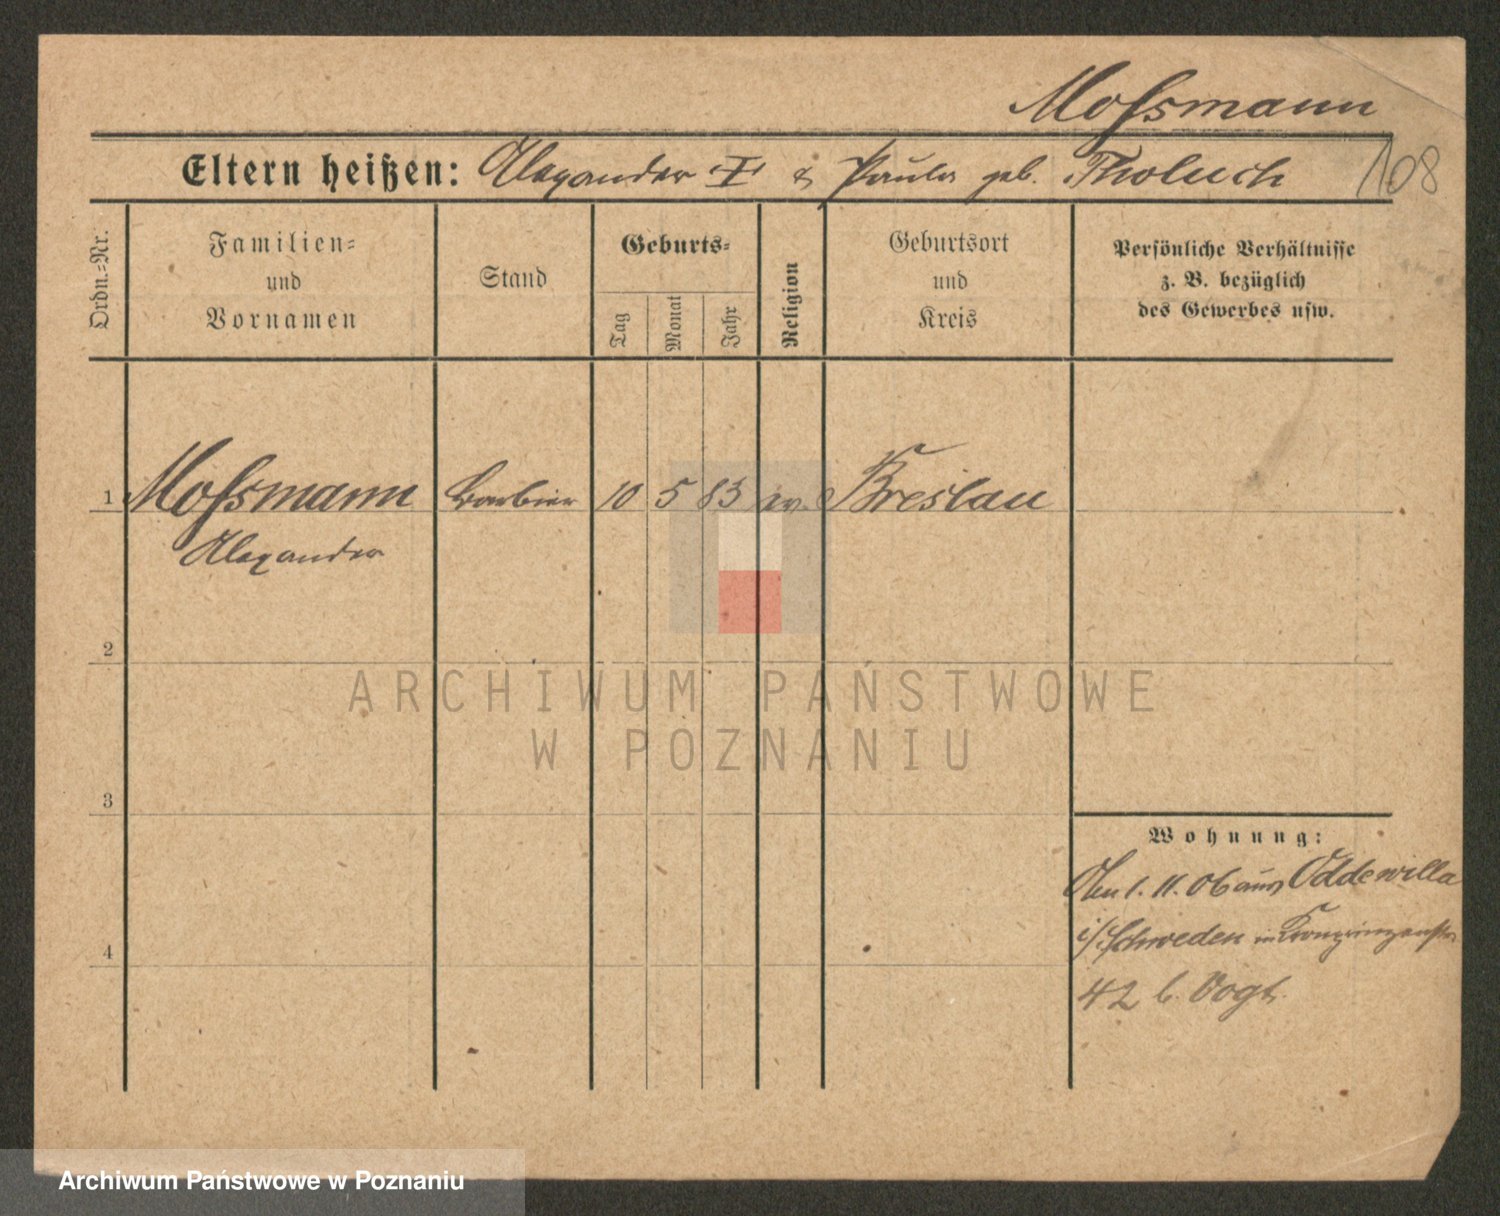 Moſsmann
Eltern heißen: Alexander "I" & Paula geb. Tholuch
108
Ordn.=Nr.
Familien=
und
Vornamen
Stand
Geburts=
Tag
Monat
Jahr
Religion
Geburtsort
und
Kreis
Persönliche Verhältnisse
z. B. bezüglich
des Gewerbes usw.
1 Moſsmann Barbier 10 5 83 ev. Breslau
Alexander
2
3
4
ARCHIWUM PAŃSTWOWE
W POZNANIU
Wohnung:
1. 11. 06 aus Oddewilla
i/Schweden in Kronprinzenstr
42 b. Vogt.
Archiwum Państwowe w Poznaniu